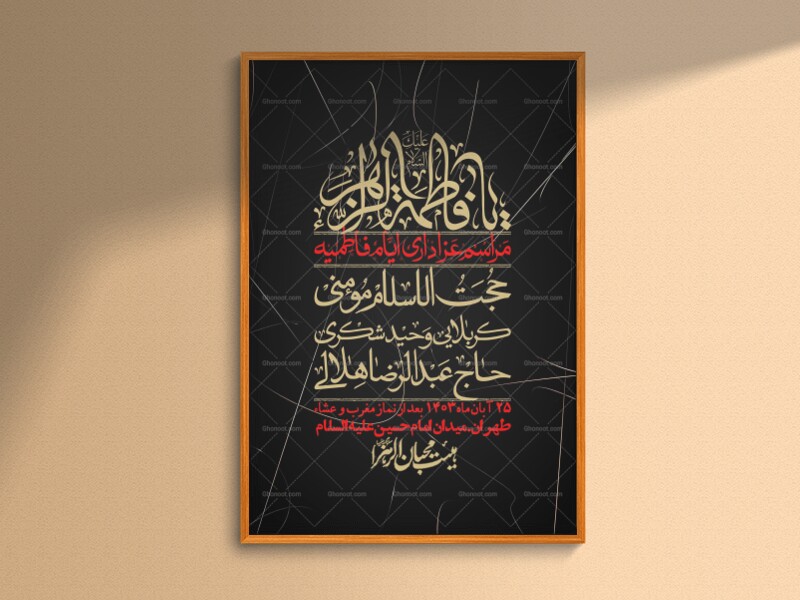 یا فاطمة الزهراء
السلام علیک
مراسم عزاداری ایام فاطمیه
حجت الاسلام مومنی
کربلایی وحید شکری
حاج عبدالرضا هلالی
۲۵ آبان ماه ۱۴۰۳ بعد از نماز مغرب و عشاء
طهران.میدان امام حسین علیه السلام
هیئت محبان الزهرا
Ghonoot.com